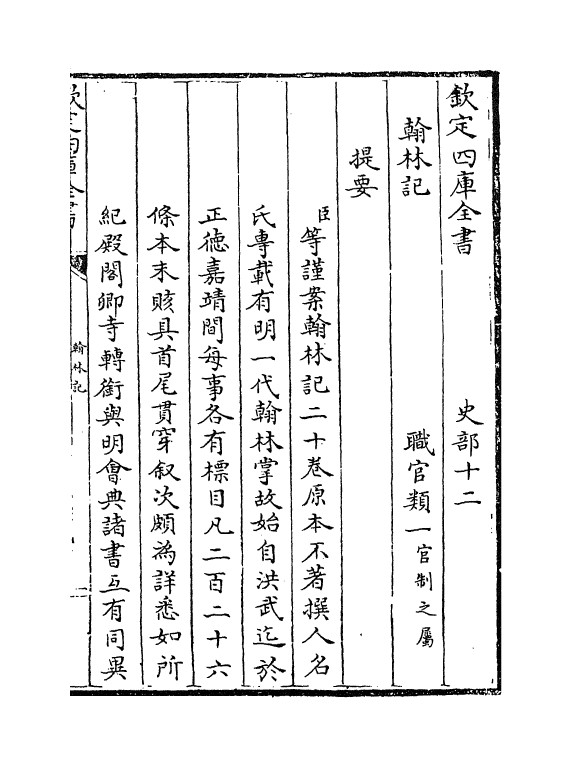 欽定四庫全書　史部十二
翰林記　職官類一官制之屬
提要
臣等謹案翰林記二十卷原本不著撰人名
氏專載有明一代翰林掌故始自洪武迄於
正徳嘉靖間每事各有標目凡二百二十六
條本末賅具首尾貫穿叙次頗為詳悉如所
紀殿閣卿寺轉銜與明會典諸書互有同異
欽定四庫全書
翰林記